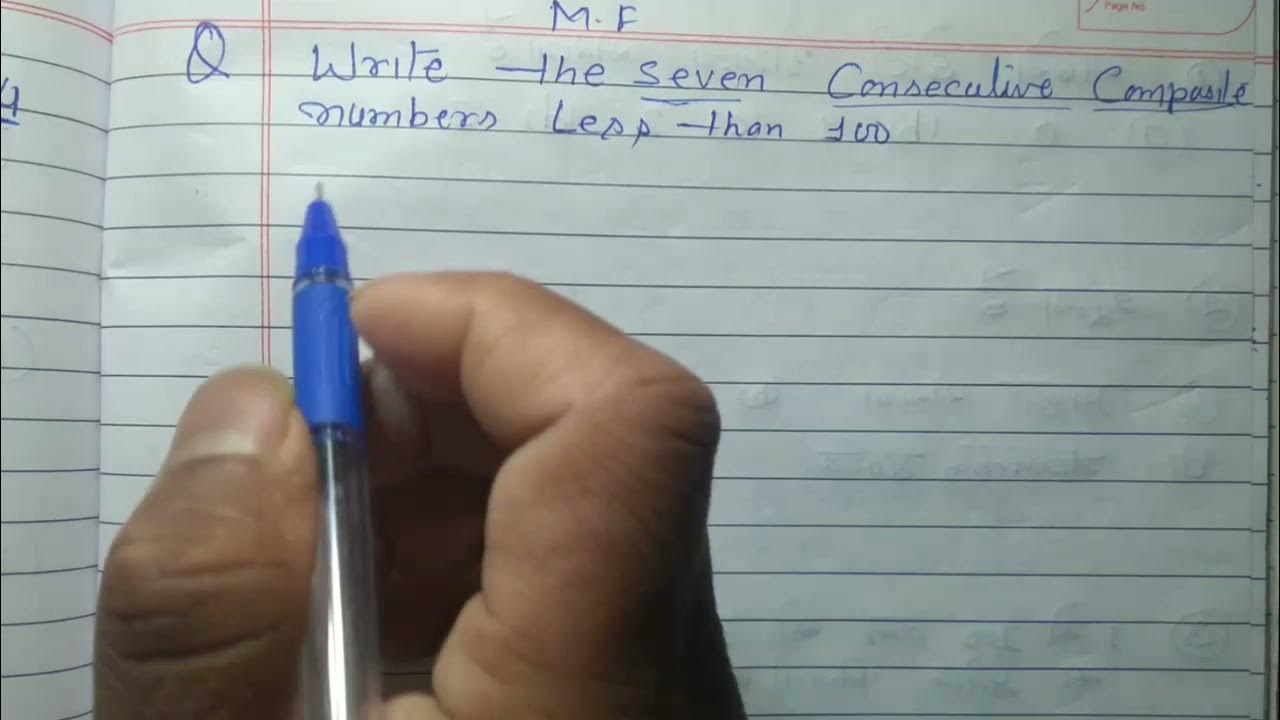 Page No
M.F
Q Write the seven Consecutive Composite
numbers Less than 100